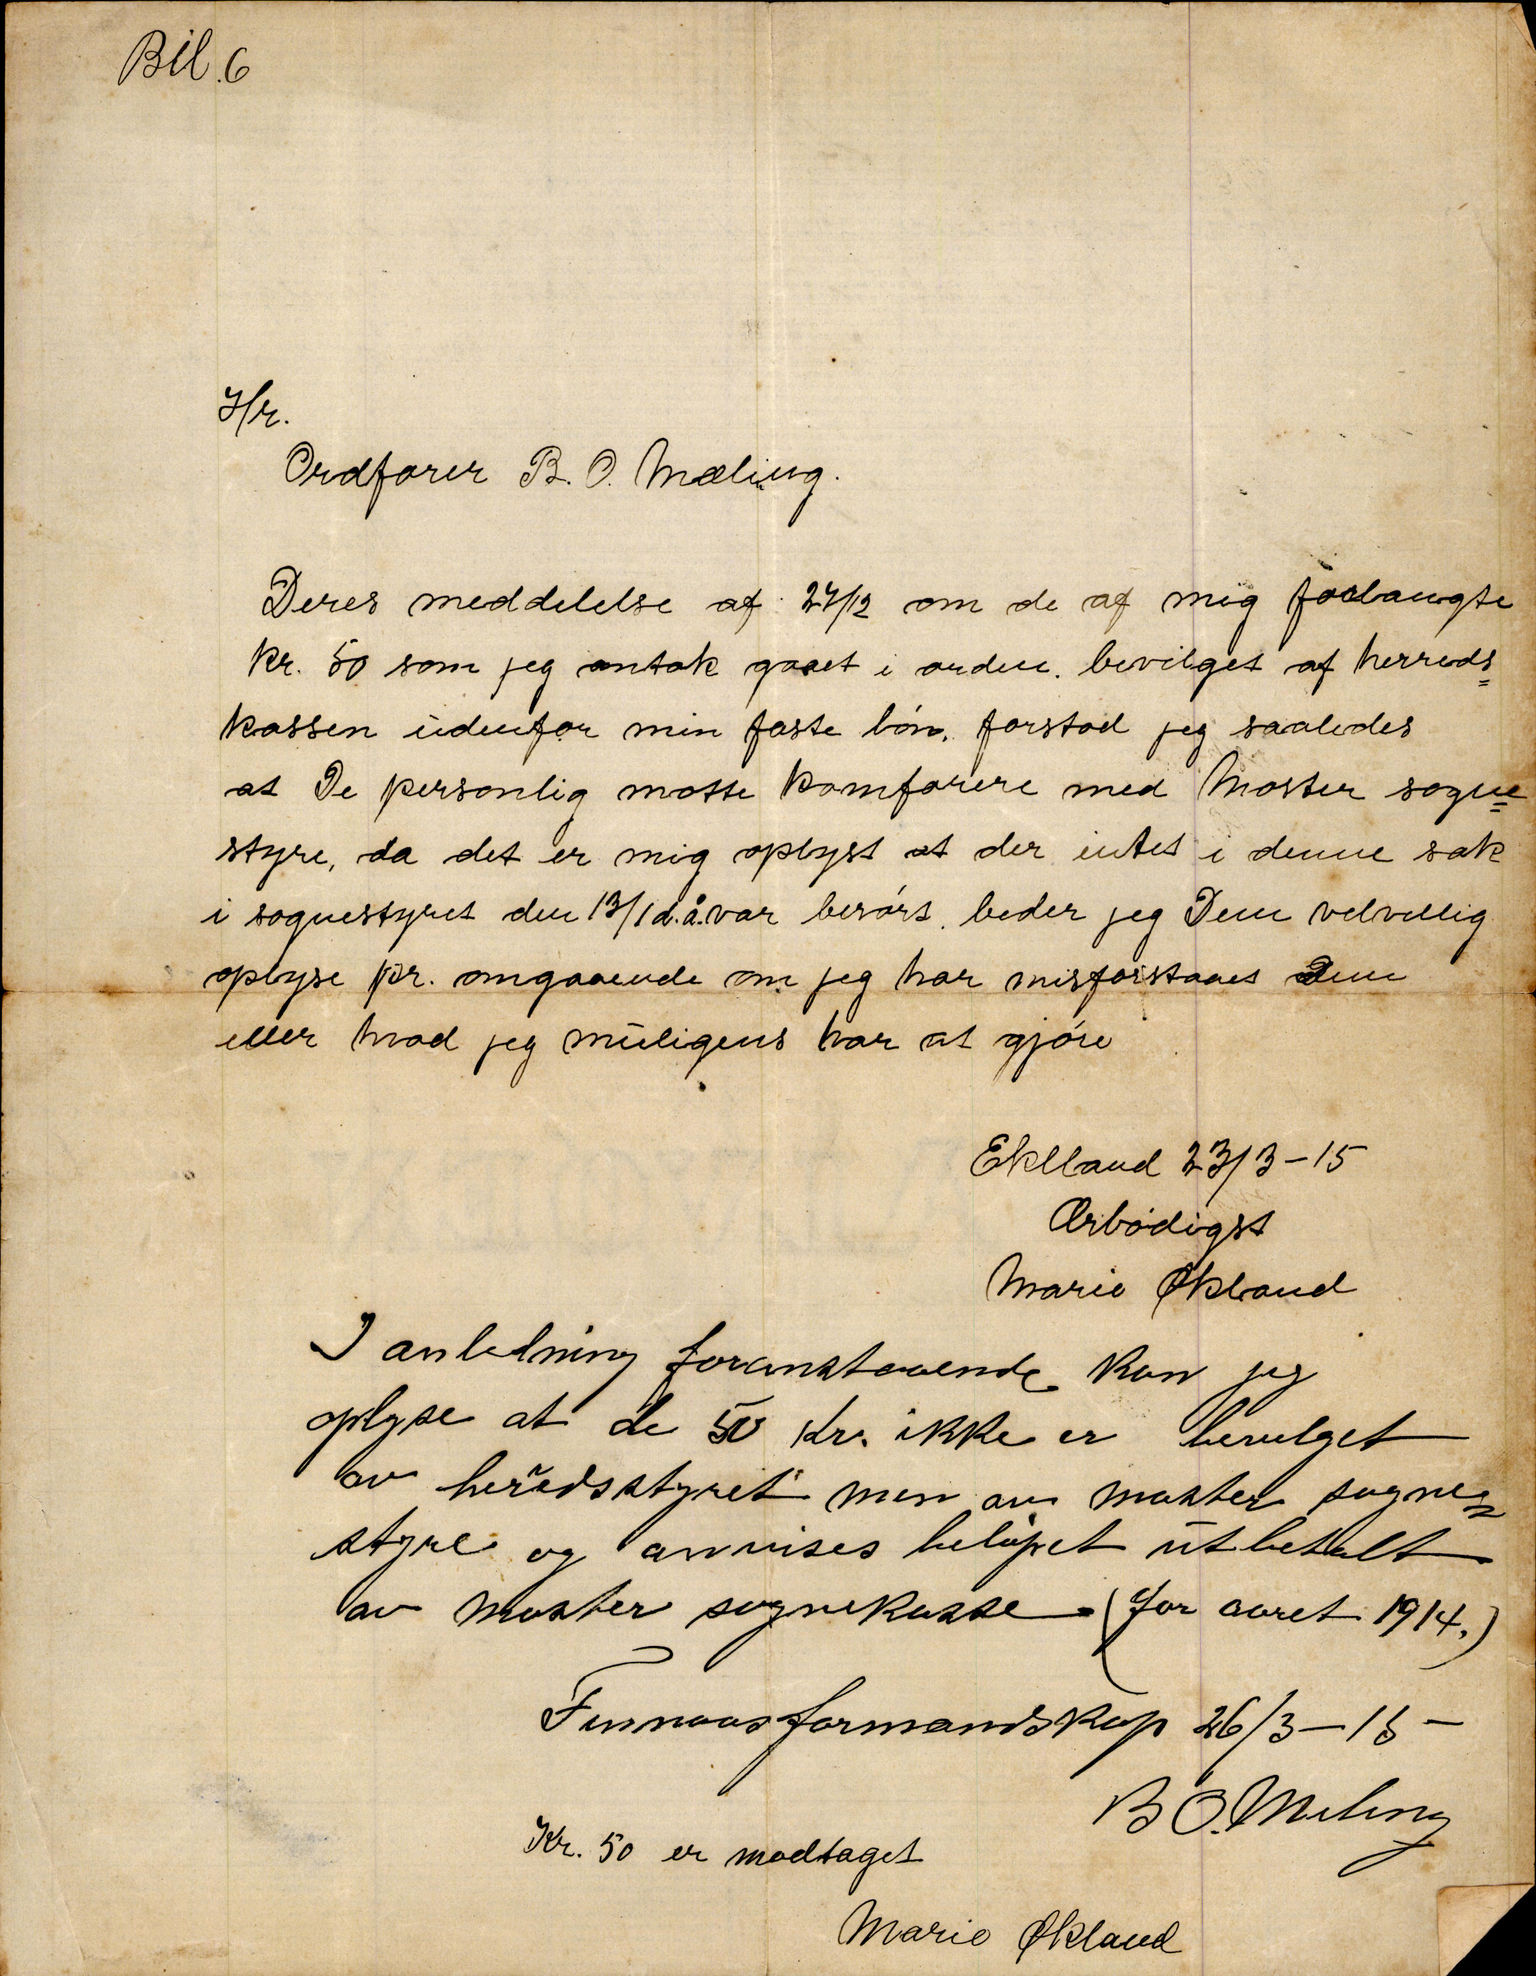 Bil. 6
Hr.
Ordfører B. O. Mæling.
Deres meddelelse af 27/12 om de af mig forlangte
kr. 50 som jeg antok gaaet i orden. bevilget af herreds=
kassen udenfor min faste løn. forstod jeg saaledes
at De personlig motte komfarere med Moster sogne=
styre, da det er mig oplyst at der intet i denne sak
i sognestyret den 13/1 d.å. var berørt. beder jeg Dem velvellig
oplyse pr. omgaaende om jeg har misforstaaet Dem
eller hvad jeg muligens har at gjøre
Eklland 23/3-15
Ærbødigst
Marie Økland
I anledning foranstaaende kan jeg
oplyse at de 50 kr. ikke er bevilget
av heredsstyret men av moster sogne=
styre og anvises beløpet utbetalt
av moster sognekasse (for aaret 1914.)
Finnaas formandskap 26/3-15-
B O. Meling
Kr. 50 er modtaget
Marie Økland